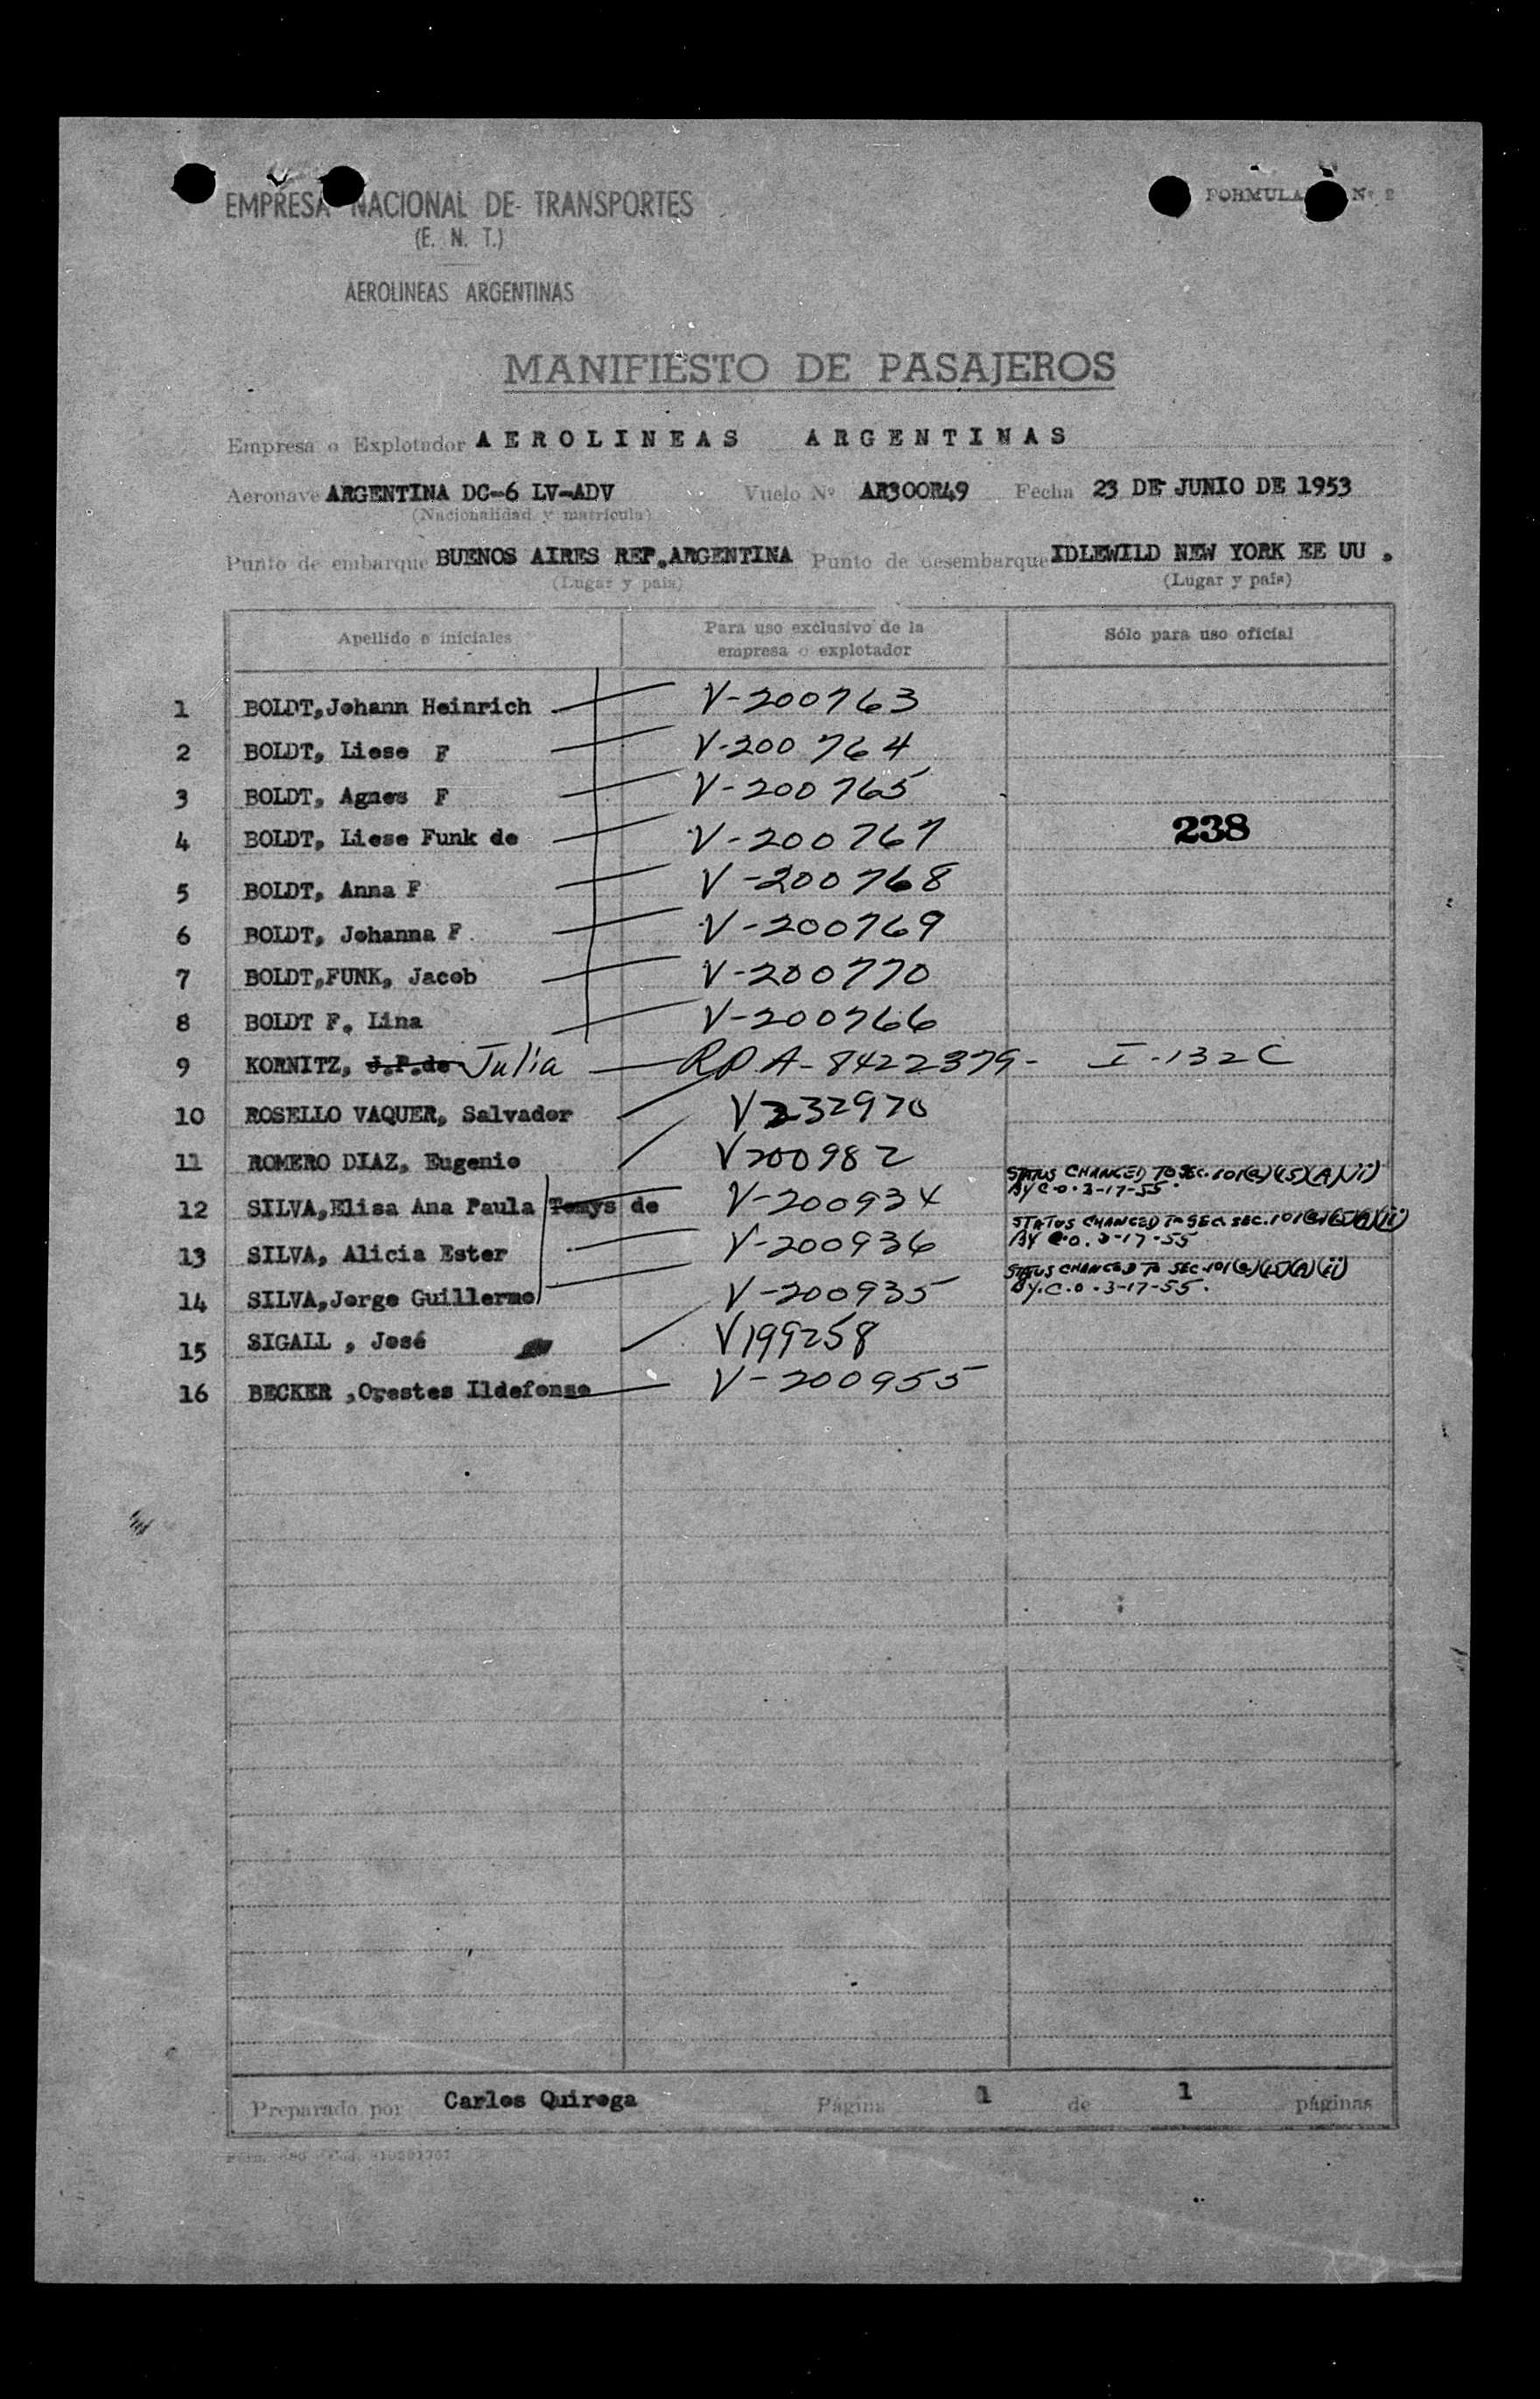 EMPRESA NACIONAL DE TRANSPORTES
(E. N. T.)
AEROLINEAS ARGENTINAS
FORMULA Nº 2
MANIFIESTO DE PASAJEROS
Empresa o Explotador AEROLINEAS ARGENTINAS
Aeronave ARGENTINA DC-6 LV-ADV Vuelo Nº AR300R49 Fecha 23 DE JUNIO DE 1953
(Nacionalidad y matrícula)
Punto de embarque BUENOS AIRES REP.ARGENTINA Punto de desembarque IDLEWILD NEW YORK EE UU .
(Lugar y país) (Lugar y país)
Apellido e iniciales Para uso exclusivo de la empresa o explotador Sólo para uso oficial
1 BOLDT,Johann Heinrich V-200763
2 BOLDT, Liese F V-200764
3 BOLDT, Agnes F V-200765
4 BOLDT, Liese Funk de V-200767 238
5 BOLDT, Anna F V-200768
6 BOLDT, Johanna F. V-200769
7 BOLDT,FUNK, Jacob V-200770
8 BOLDT F. Lina V-200766
9 KORNITZ, J.P.de Julia RP A-8422379- I-132C
10 ROSELLO VAQUER, Salvador V232970
11 ROMERO DIAZ, Eugenio V200982
12 SILVA,Elisa Ana Paula Temys de V-200934 STATUS CHANGED TO SEC.101(a)(15)(A)(ii)
BY C.O. 3-17-55.
13 SILVA, Alicia Ester V-200936 STATUS CHANGED TO SEC. SEC.101(a)(15)(A)(ii)
BY C.O. 3-17-55
14 SILVA,Jorge Guillermo V-200935 STATUS CHANGED TO SEC.101(a)(15)(A)(ii)
BY.C.O.3-17-55.
15 SIGALL , José V199258
16 BECKER ,Orestes Ildefonso V-200955
Preparado por Carlos Quiroga Página 1 de 1 páginas